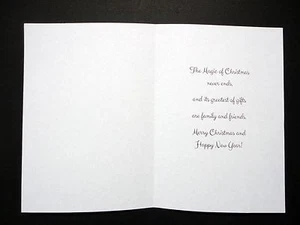 The Magic of Christmas
never ends,
and its greatest of gifts
are family and friends.
Merry Christmas and
Happy New Year!